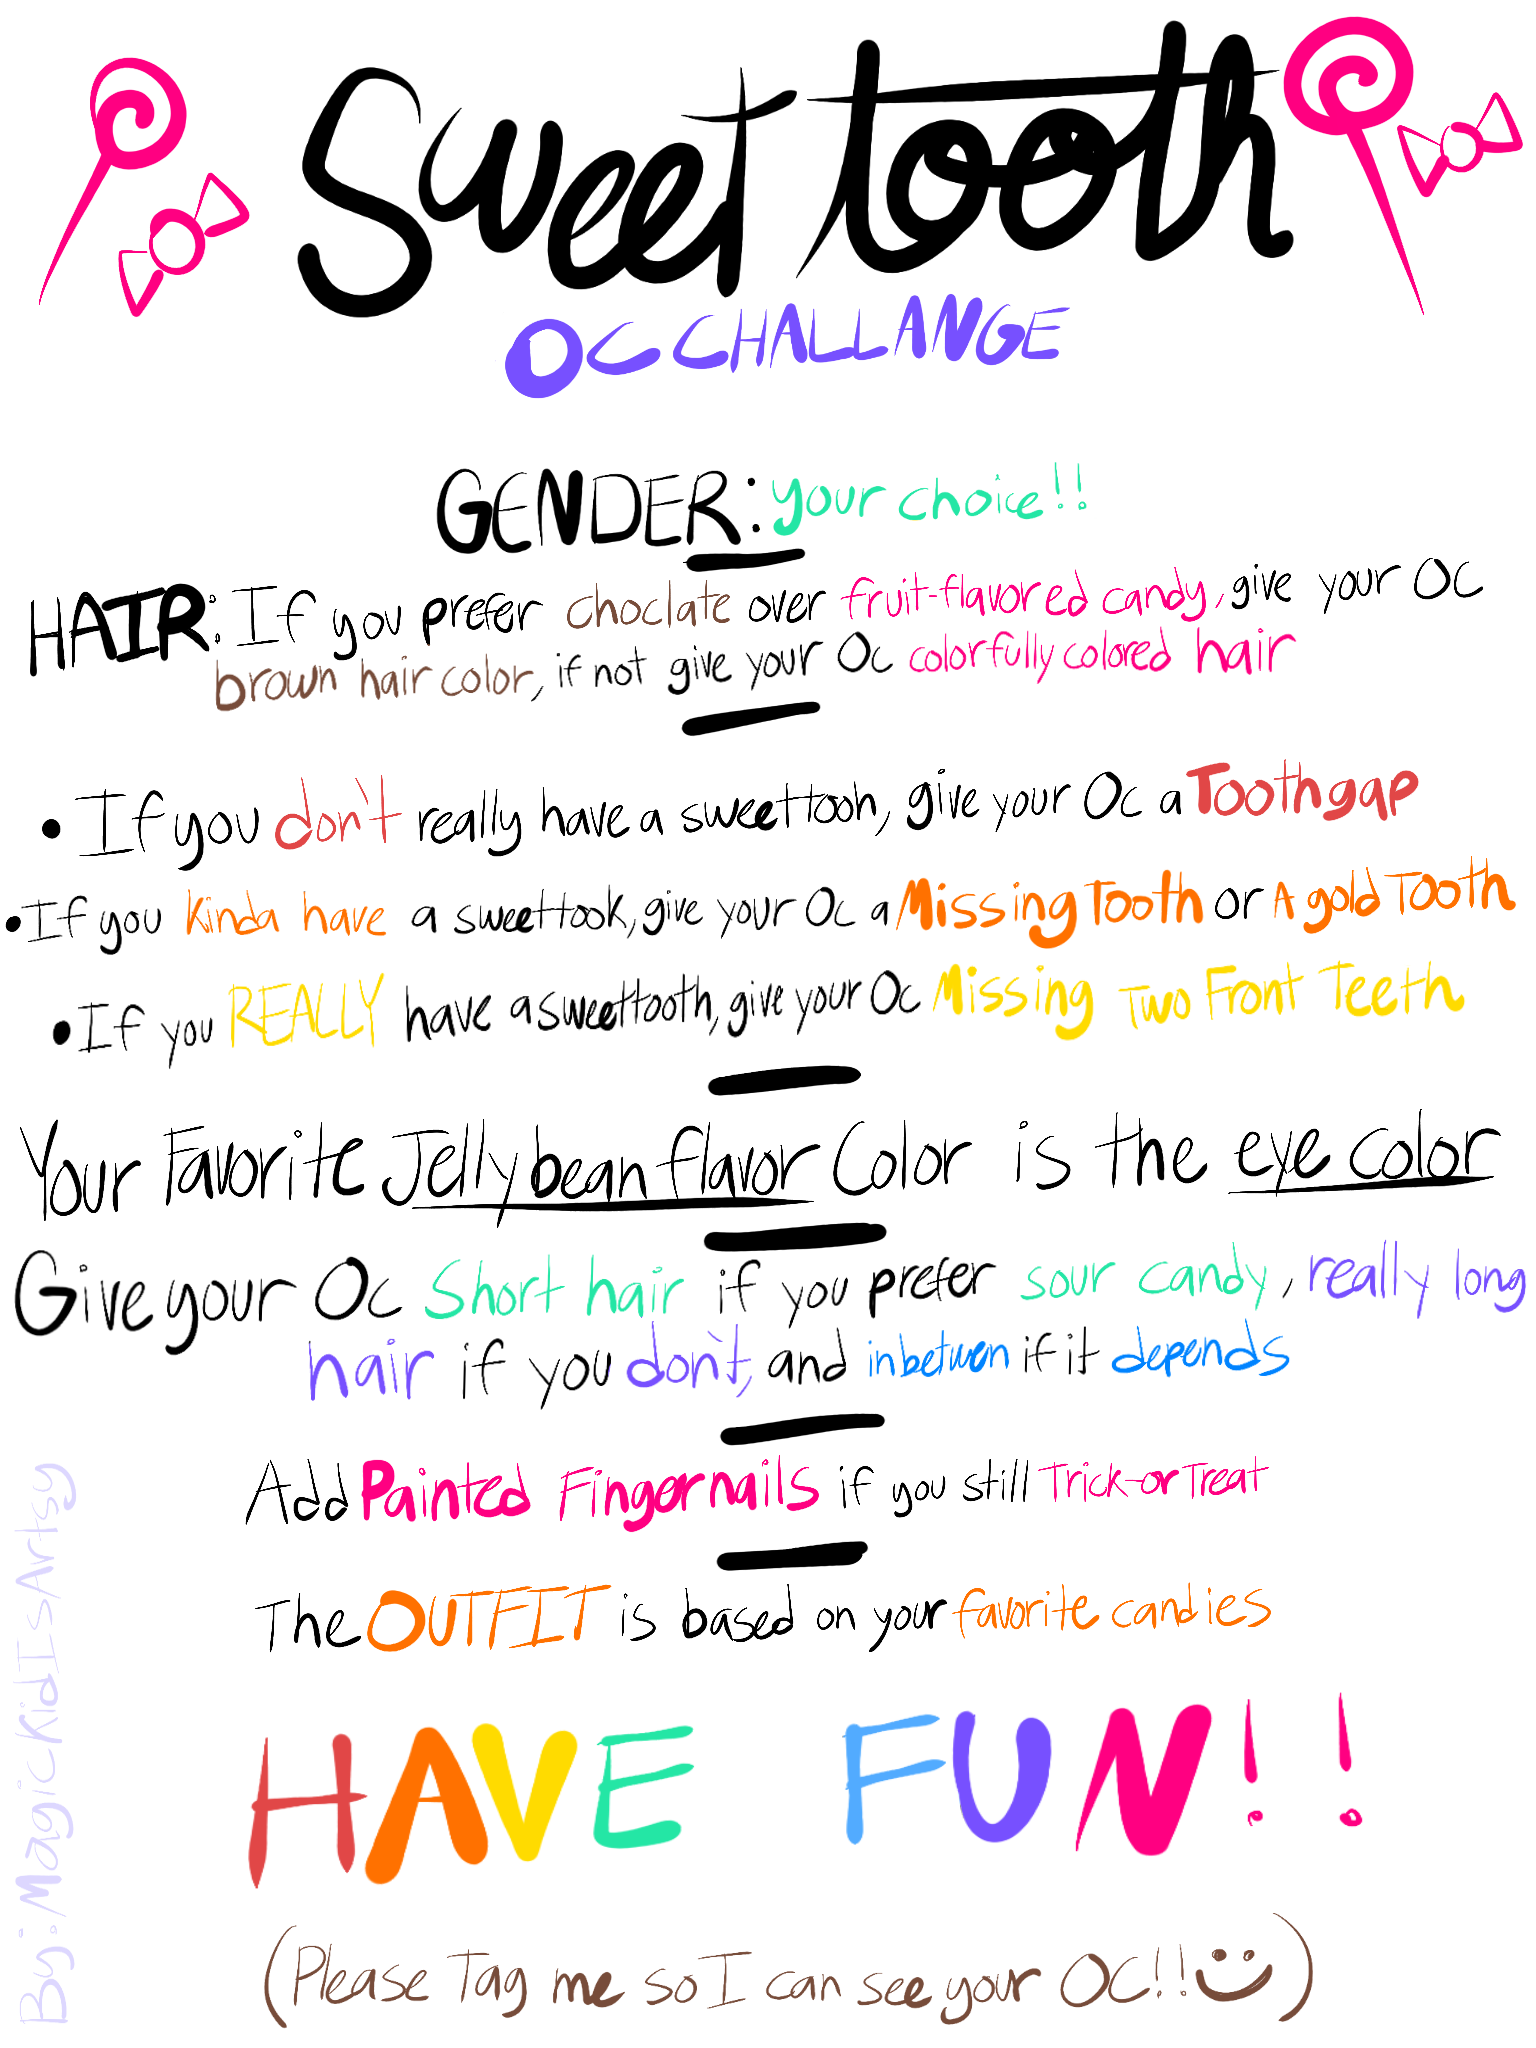 Sweet tooth
OC CHALLANGE
GENDER: your choice!!
HAIR: If you prefer choclate over fruit-flavored candy, give your OC
brown hair color, if not give your Oc colorfully colored hair
• If you don't really have a sweettooh, give your Oc a Toothgap
• If you kinda have a sweettook, give your Oc a Missing Tooth or A gold Tooth
• If you REALLY have a sweettooth, give your Oc Missing Two Front Teeth
Your Favorite Jellybean flavor Color is the eye color
Give your Oc Short hair if you prefer sour candy, really long
hair if you don't, and inbetwen if it depends
Add Painted Fingernails if you still Trick-or Treat
The OUTFIT is based on your favorite candies
HAVE FUN!!
(Please Tag me so I can see your OC!!)
By: MagicKidIsArtsy